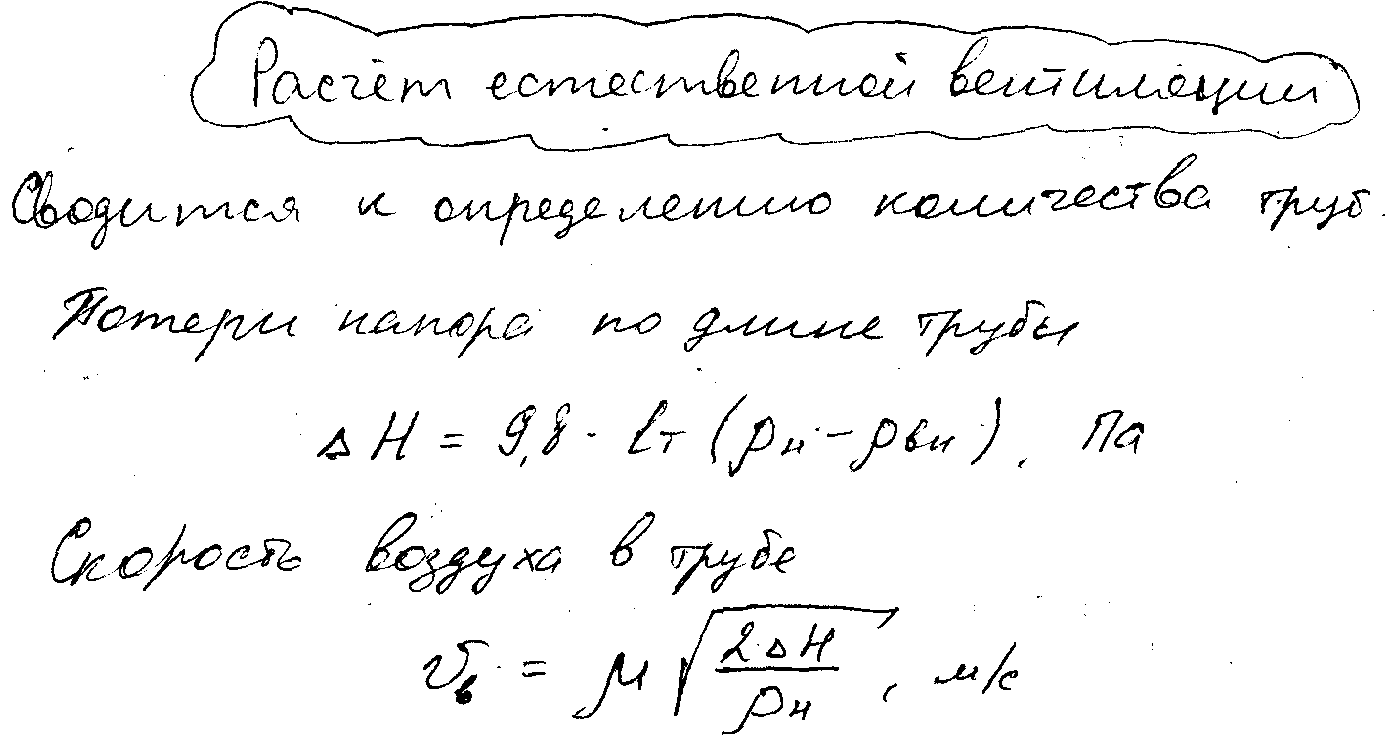 Расчёт естественной вентиляции
Сводится к определению количества труб.
Потери напора по длине трубы
ΔH = 9,8 · lт (ρн – ρвн), Па
Скорость воздуха в трубе
vв = μ √(2ΔH / ρн), м/с